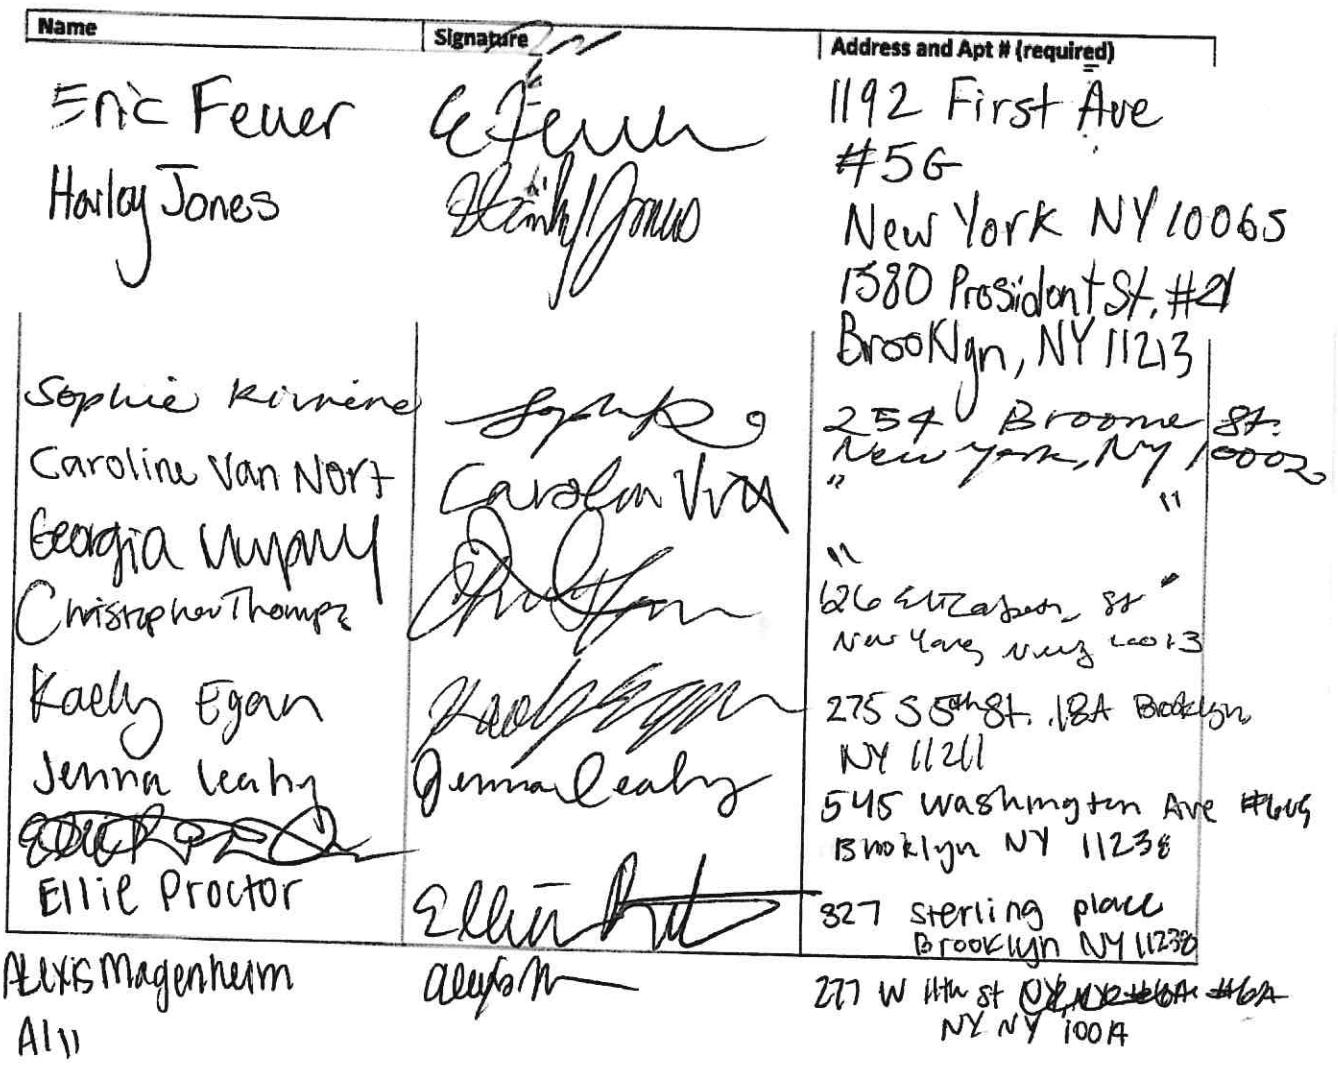 Name Signature Address and Apt # (required)
Eric Feuer E Feuer 1192 First Ave
#5G
Harley Jones New York NY 10065
1580 President St. #2
Brooklyn, NY 11213
Sophie 254 Broome St.
New York, NY 10002
Caroline Van Nort " "
Georgia "
Christopher 626 Elizabeth St
New York, 10013
Kaely Egan Kaely Egan 275 S 5th St. Brooklyn
NY 11211
Jenna Leahy Jenna Leahy 545 Washington Ave
Brooklyn NY 11238
Ellie Proctor 327 Sterling place
Brooklyn NY 11238
Alexis Magenheim Alexis M 277 W 11th st #6A
NY NY